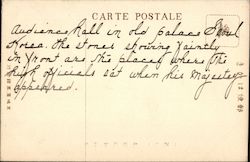 CARTE POSTALE
Audience Hall in old palace Seoul
Korea. The stones showing faintly
in front are the places where the
high officials sat when his Majesty
appeared.